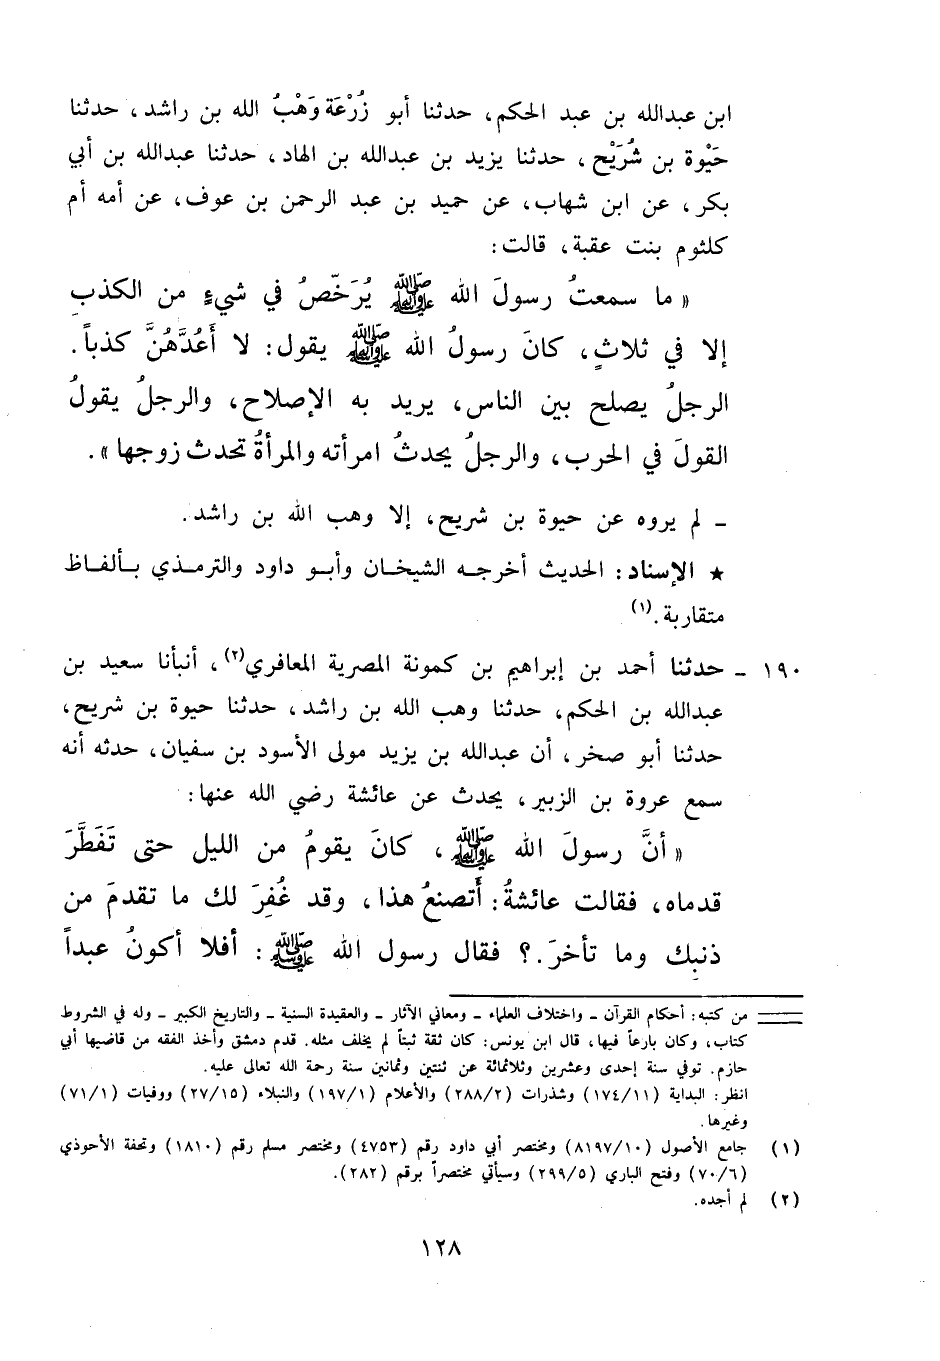 ابن عبدالله بن عبد الحكم، حدثنا أبو زُرْعَة وَهْبُ الله بن راشد، حدثنا
حَيْوة بن شُرَيْح، حدثنا يزيد بن عبدالله بن الهاد، حدثنا عبدالله بن أبي
بكر، عن ابن شهاب، عن حميد بن عبد الرحمن بن عوف، عن أمه أم
كلثوم بنت عقبة، قالت:
« ما سمعتُ رسولَ الله ﷺ يُرَخّصُ في شيءٍ من الكذبِ
إلا في ثلاثٍ، كانَ رسولُ الله ﷺ يقول: لا أَعُدَّهُنَّ كذباً.
الرجلُ يصلح بين الناس، يريد به الإصلاح، والرجلُ يقولُ
القولَ في الحرب، والرجلُ يحدثُ امرأته والمرأةُ تحدث زوجها ».
ـ لم يروه عن حيوة بن شريح، إلا وهب الله بن راشد.
★ الإسناد: الحديث أخرجه الشيخان وأبو داود والترمذي بألفاظ
متقاربة.(١)
١٩٠ ـ حدثنا أحمد بن إبراهيم بن كمونة المصرية المعافري(٢)، أنبأنا سعيد بن
عبدالله بن الحكم، حدثنا وهب الله بن راشد، حدثنا حيوة بن شريح،
حدثنا أبو صخر، أن عبدالله بن يزيد مولى الأسود بن سفيان، حدثه أنه
سمع عروة بن الزبير، يحدث عن عائشة رضي الله عنها:
« أنَّ رسولَ الله ﷺ، كانَ يقومُ من الليل حتى تَفَطَّرَ
قدماه، فقالت عائشةُ: أَتصنعُ هذا، وقد غُفِرَ لك ما تقدمَ من
ذنبِك وما تأخرَ.؟ فقال رسول الله ﷺ: أفلا أكونُ عبداً
من كتبه: أحكام القرآن ـ واختلاف العلماء ـ ومعاني الآثار ـ والعقيدة السنية ـ والتاريخ الكبير ـ وله في الشروط
كتاب، وكان بارعاً فيها، قال ابن يونس: كان ثقة ثبتاً لم يخلف مثله. قدم دمشق وأخذ الفقه من قاضيها أبي
حازم. توفي سنة إحدى وعشرين وثلاثمائة عن ثنتين وثمانين سنة رحمة الله تعالى عليه.
انظر: البداية (١٧٤/١١) وشذرات (٢٨٨/٢) والأعلام (١٩٧/١) والنبلاء (٢٧/١٥) ووفيات (٧١/١)
وغيرها.
(١) جامع الأصول (٨١٩٧/١٠) ومختصر أبي داود رقم (٤٧٥٣) ومختصر مسلم رقم (١٨١٠) وتحفة الأحوذي
(٧٠/٦) وفتح الباري (٢٩٩/٥) وسيأتي مختصراً برقم (٢٨٢).
(٢) لم أجده.
١٢٨